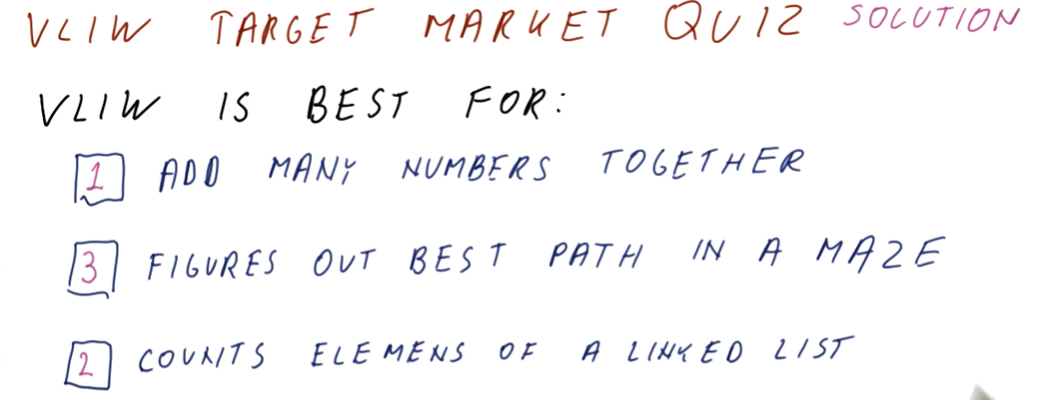 VLIW TARGET MARKET QUIZ SOLUTION
VLIW IS BEST FOR:
1 ADD MANY NUMBERS TOGETHER
3 FIGURES OUT BEST PATH IN A MAZE
2 COUNTS ELEMENS OF A LINKED LIST